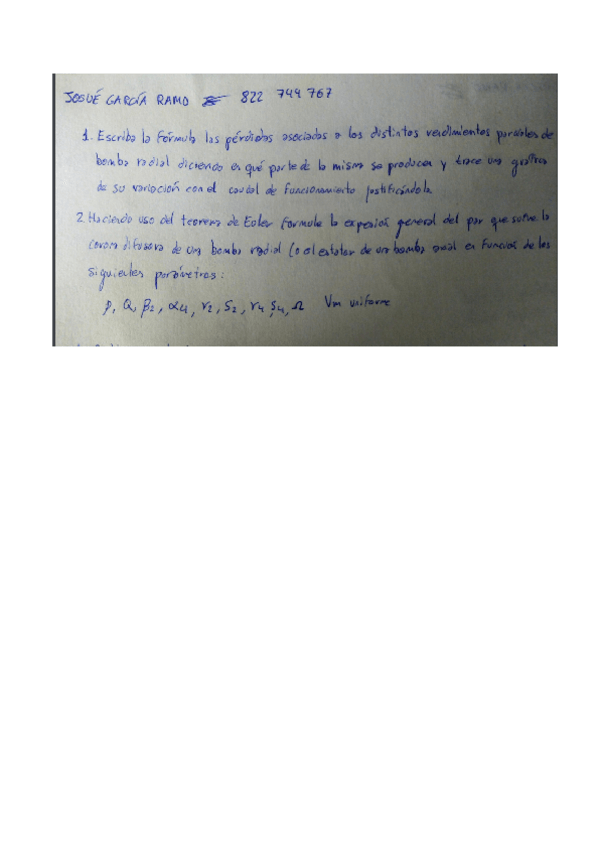 JOSUÉ GARCÍA RAMO 822 744 767
1. Escriba la fórmula las pérdidas asociadas a los distintos rendimientos parciales de
bomba radial diciendo en qué parte de la misma se producen y trace una gráfica
de su variación con el caudal de funcionamiento justificándola.
2. Haciendo uso del teorema de Euler formule la expresión general del par que sufre la
corona difusora de una bomba radial (o el estator de una bomba axial en función de los
siguientes parámetros:
ρ, Q, β2, α4, r2, S2, r4, S4, Ω Vm uniforme